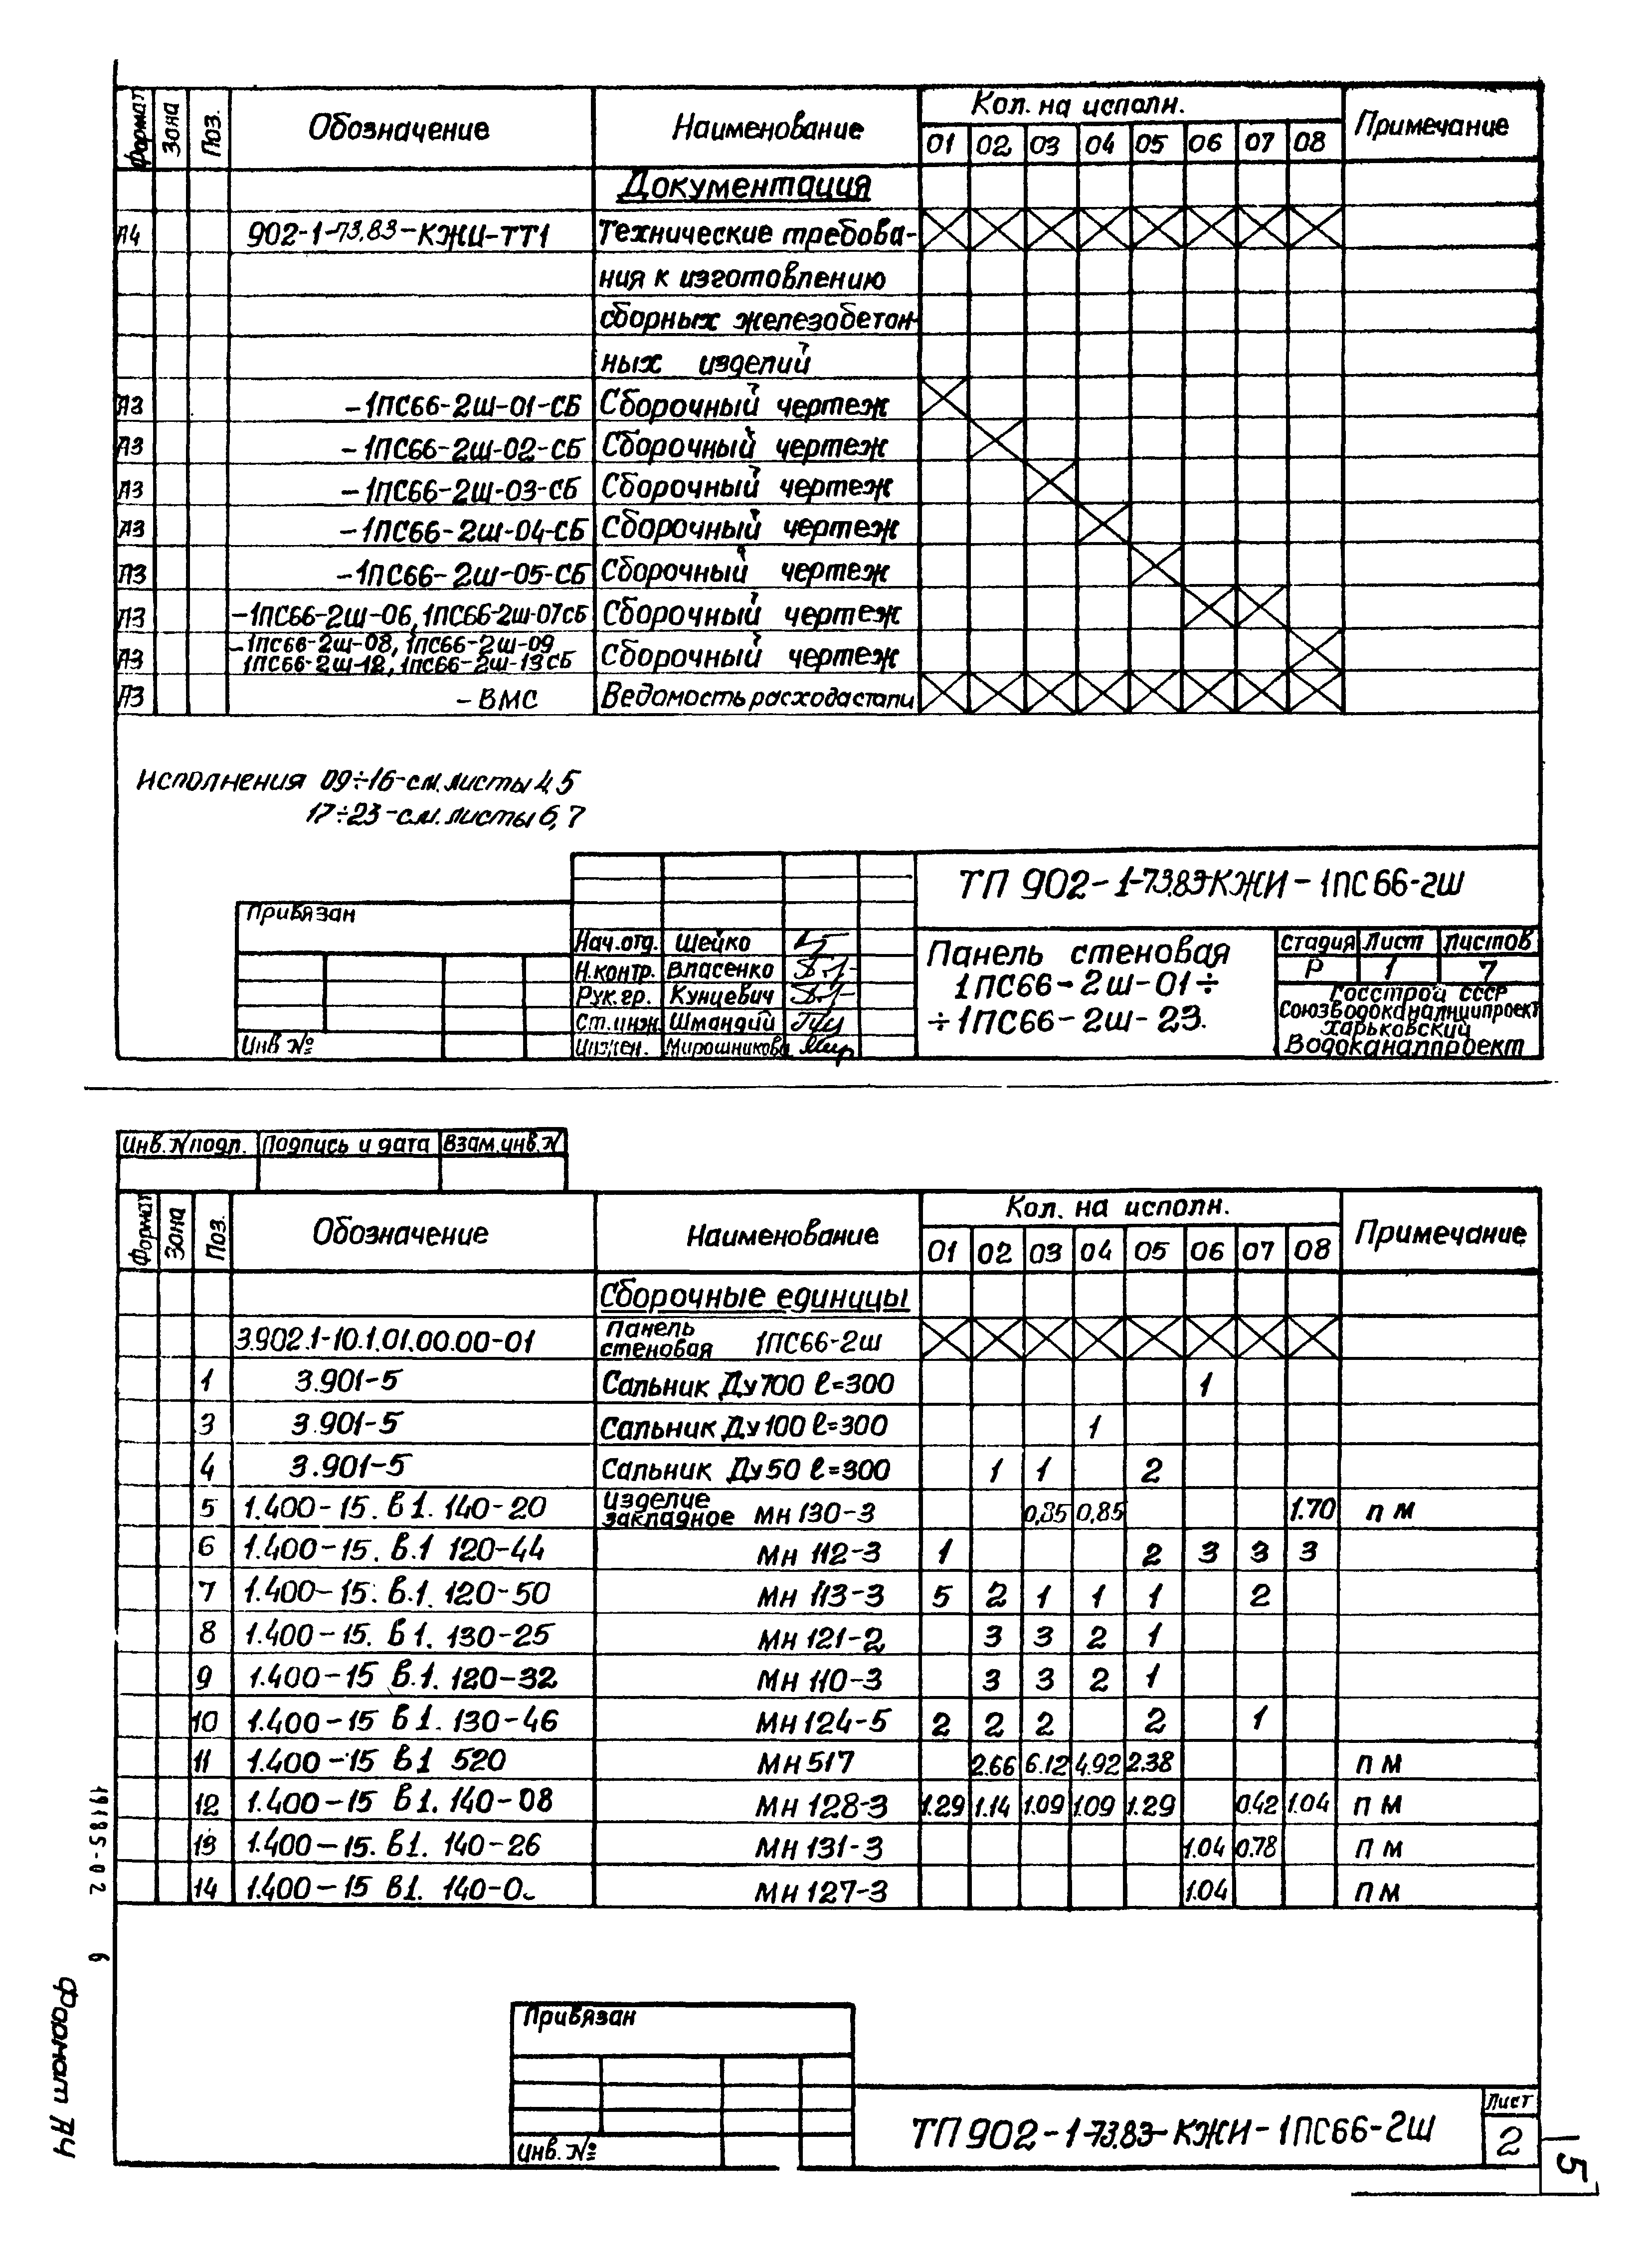 Формат Зона Поз. Обозначение Наименование Кол. на исполн. Примечание
01 02 03 04 05 06 07 08
Документация
А4 902-1-73.83-КЖИ-ТТ1 Технические требова-
ния к изготовлению
сборных железобетон-
ных изделий
А3 -1ПС66-2Ш-01-СБ Сборочный чертеж
А3 -1ПС66-2Ш-02-СБ Сборочный чертеж
А3 -1ПС66-2Ш-03-СБ Сборочный чертеж
А3 -1ПС66-2Ш-04-СБ Сборочный чертеж
А3 -1ПС66-2Ш-05-СБ Сборочный чертеж
А3 -1ПС66-2Ш-06, 1ПС66-2Ш-07СБ Сборочный чертеж
-1ПС66-2Ш-08, 1ПС66-2Ш-09
А3 1ПС66-2Ш-12, 1ПС66-2Ш-13СБ Сборочный чертеж
А3 -ВМС Ведомость расхода стали
Исполнения 09÷16-см. листы 4,5
17÷23-см. листы 6,7
ТП 902-1-73.83-КЖИ-1ПС66-2Ш
Привязан
Нач.отд. Шейко
Н.контр. Власенко
Рук.гр. Кунцевич
Ст.инж. Шмандий
Инжен. Мирошникова
Инв №
Панель стеновая
1ПС66-2Ш-01÷
÷1ПС66-2Ш-23.
Стадия Лист Листов
Р 1 7
Госстрой СССР
Союзводоканалниипроект
Харьковский
Водоканалпроект
Инв. N подл. Подпись и дата Взам.инв.N
Формат Зона Поз. Обозначение Наименование Кол. на исполн. Примечание
01 02 03 04 05 06 07 08
Сборочные единицы
3.902.1-10.1.01.00.00-01 Панель стеновая 1ПС66-2Ш
1 3.901-5 Сальник Ду 700 ℓ=300 1
3 3.901-5 Сальник Ду 100 ℓ=300 1
4 3.901-5 Сальник Ду 50 ℓ=300 1 1 2
5 1.400-15. В1. 140-20 Изделие закладное МН 130-3 0,85 0,85 1.70 п м
6 1.400-15. В.1 120-44 МН 112-3 1 2 3 3 3
7 1.400-15. В.1. 120-50 МН 113-3 5 2 1 1 1 2
8 1.400-15. В1. 130-25 МН 121-2 3 3 2 1
9 1.400-15 В.1. 120-32 МН 110-3 3 3 2 1
10 1.400-15 В1. 130-46 МН 124-5 2 2 2 2 1
11 1.400-15 В1 520 МН 517 2.66 6.12 4.92 2.38 п м
12 1.400-15 В1. 140-08 МН 128-3 1.29 1.14 1.09 1.09 1.29 0.42 1.04 п м
13 1.400-15. В1. 140-26 МН 131-3 1.04 0.78 п м
14 1.400-15 В1. 140-0 МН 127-3 1.04 п м
19185-02 6
Формат А4
Привязан
Инв. №
ТП 902-1-73.83-КЖИ-1ПС66-2Ш
Лист
2
5